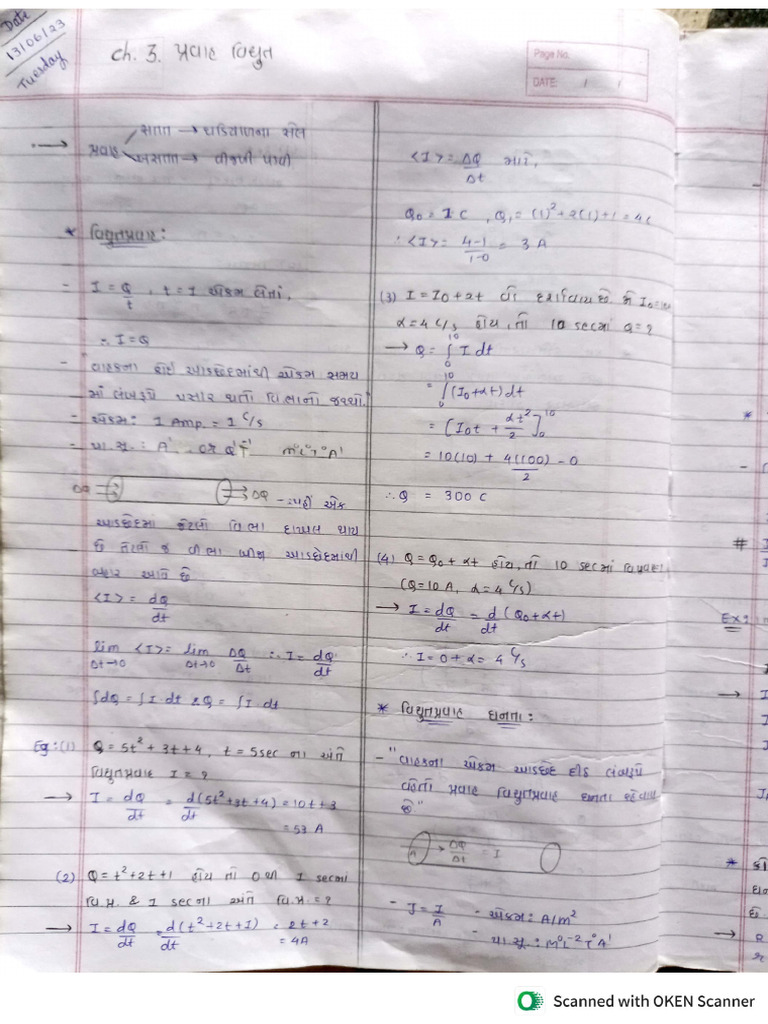 Date
13/06/23
Tuesday
Ch. 3. પ્રવાહ વિદ્યુત
Page No.
DATE: / /
સતત → ઘડિયાળના સેલ
→ પ્રવાહ
અસતત → વીજળી પડવી
* વિદ્યુતપ્રવાહ:
- I = Q/t , t = 1 એકમ લેતાં,
∴ I = Q
- વાહકના કોઈ આડછેદમાંથી એકમ સમય
માં લંબરૂપે પસાર થતો વિભારનો જથ્થો.
- એકમ: 1 Amp. = 1 C/s
- પા.સૂ.: A¹ or Q¹T⁻¹ M⁰L⁰T⁰A¹
ΔQ → → ΔQ - અહીં એક
આડછેદમાં જેટલો વિભાર દાખલ થાય
છે તેટલો જ વીભાર બીજા આડછેદમાંથી
બહાર આવે છે
<I> = dQ/dt
lim Δt→0 <I> = lim Δt→0 ΔQ/Δt ∴ I = dQ/dt
∫dQ = ∫I·dt & Q = ∫I·dt
Eg: (1) Q = 5t² + 3t + 4, t = 5sec ના અંતે
વિદ્યુતપ્રવાહ I = ?
→ I = dQ/dt = d(5t²+3t+4)/dt = 10t + 3
= 53 A
(2) Q = t² + 2t + 1 હોય તો 0 થી 1 secમાં
વિ.પ્ર. & 1 secના અંતે વિ.પ્ર. = ?
→ I = dQ/dt = d(t²+2t+1)/dt = 2t + 2
= 4A
<I> = ΔQ/Δt માટે,
Q₀ = 1 C , Q₁ = (1)² + 2(1) + 1 = 4C
∴ <I> = 4-1/1-0 = 3 A
(3) I = I₀ + αt વડે દર્શાવાય છે જે I₀ = 10
α = 4 C/s હોય, તો 10 secમાં Q = ?
→ Q = ∫₀¹⁰ I dt
= ∫₀¹⁰ (I₀ + αt) dt
= [I₀t + αt²/2]₀¹⁰
= 10(10) + 4(100)/2 - 0
∴ Q = 300 C
(4) Q = Q₀ + αt હોય, તો 10 secમાં
(Q = 10 A, α = 4 C/s)
→ I = dQ/dt = d/dt (Q₀ + αt)
∴ I = 0 + α = 4 C/s
* વિદ્યુતપ્રવાહ ઘનતા:
- "વાહકના એકમ આડછેદ દીઠ લંબરૂપે
વહેતો પ્રવાહ વિદ્યુતપ્રવાહ ઘનતા કહેવાય
છે."
A → ΔQ/Δt = I
- J = I/A - એકમ: A/m²
- પા.સૂ.: M⁰L⁻²T⁰A¹
#
Ex:
Scanned with OKEN Scanner